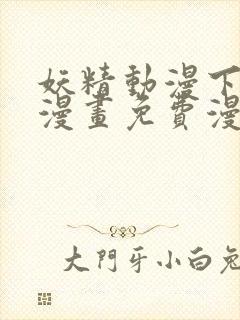 妖精動漫下
漫畫免費漫
大門牙小白兔